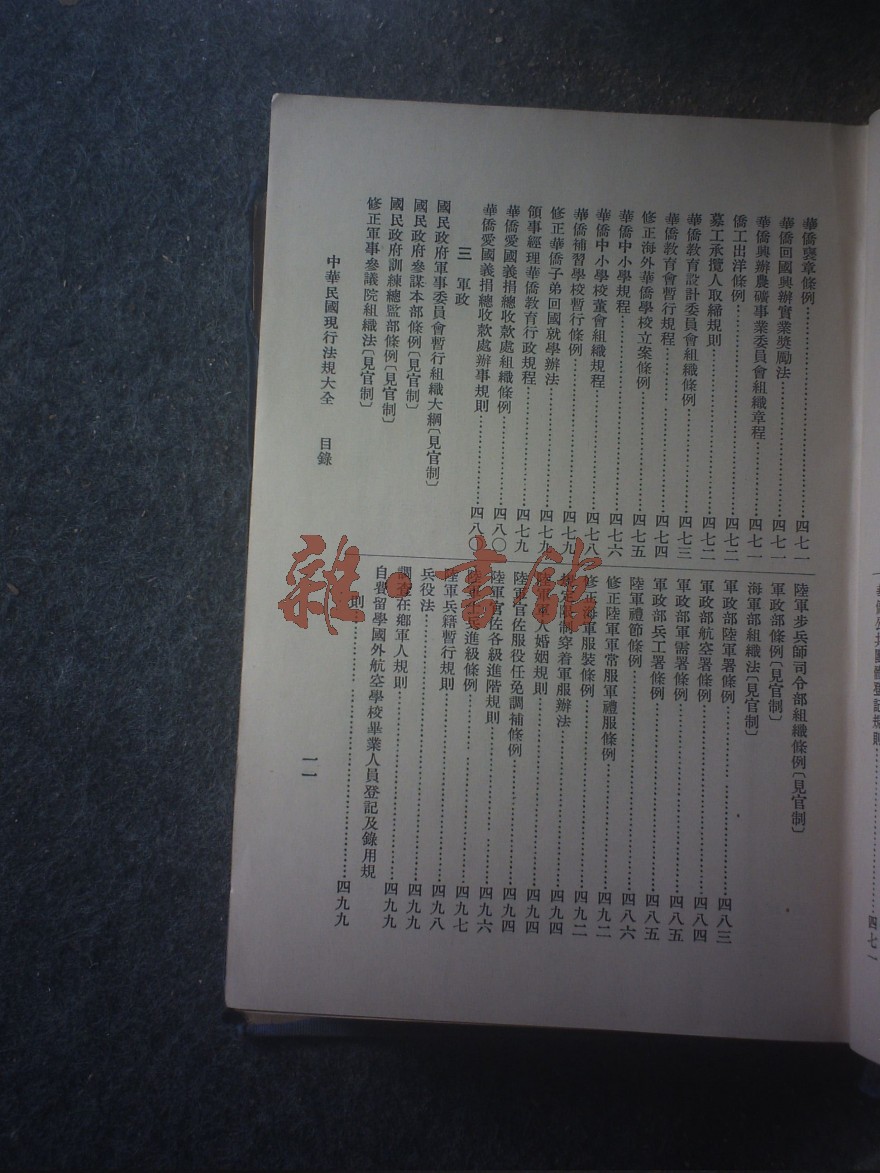 華僑褒章條例……四七一
華僑回國興辦實業獎勵法……四七一
華僑興辦農礦事業委員會組織章程……四七一
僑工出洋條例……四七二
募工承攬人取締規則……四七二
華僑教育設計委員會組織條例……四七三
華僑教育會暫行規程……四七四
修正海外華僑學校立案條例……四七五
華僑中小學規程……四七六
華僑中小學校董會組織規程……四七八
華僑補習學校暫行條例……四七九
修正華僑子弟回國就學辦法……四七九
領事經理華僑教育行政規程……四七九
華僑愛國義捐總收款處組織條例……四八〇
華僑愛國義捐總收款處辦事規則……四八〇
三 軍政
國民政府軍事委員會暫行組織大綱〔見官制〕
國民政府參謀本部條例〔見官制〕
國民政府訓練總監部條例〔見官制〕
修正軍事參議院組織法〔見官制〕
陸軍步兵師司令部組織條例〔見官制〕
軍政部條例〔見官制〕
海軍部組織法〔見官制〕
軍政部陸軍署條例……四八三
軍政部航空署條例……四八四
軍政部軍需署條例……四八五
軍政部兵工署條例……四八五
陸軍禮節條例……四八六
修正陸軍軍常服軍禮服條例……四九二
修正海軍服裝條例……四九二
限制穿着軍服辦法……四九四
軍人婚姻規則……四九四
陸軍官佐服役任免調補條例……四九四
陸軍官佐各級進階規則……四九六
陸軍士兵進級條例……四九七
陸軍兵籍暫行規則……四九八
兵役法……四九九
調查在鄉軍人規則……四九九
自費留學國外航空學校畢業人員登記及錄用規
則……四九九
中華民國現行法規大全 目錄
一一
四七一
雜·書館